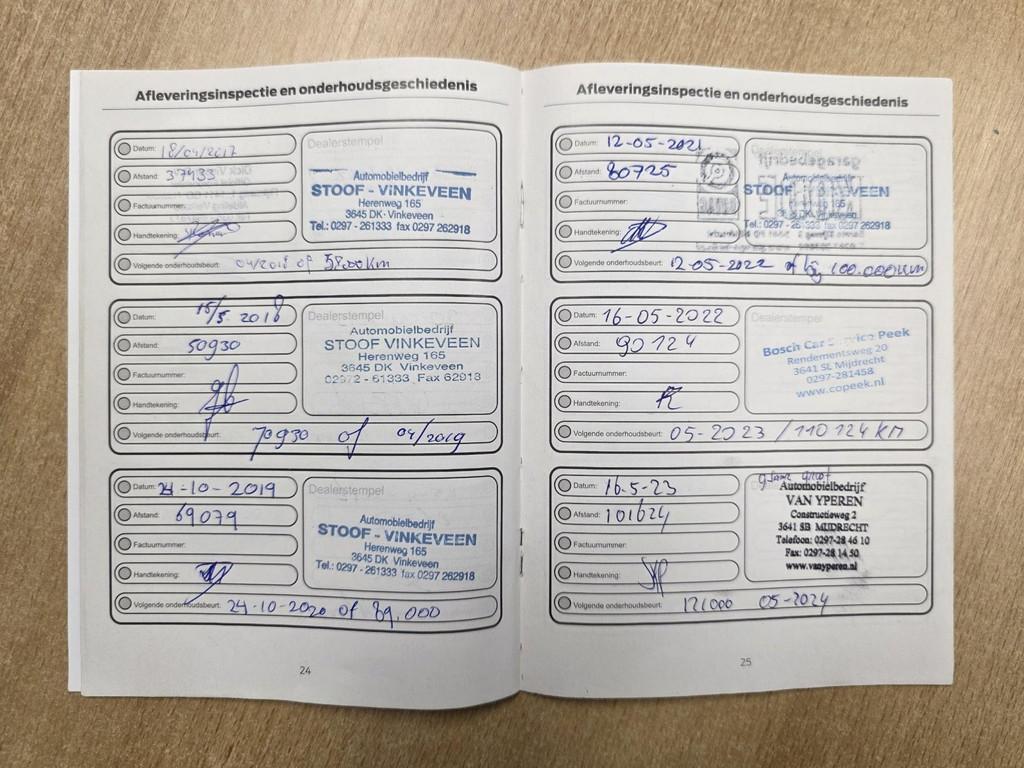 Afleveringsinspectie en onderhoudsgeschiedenis
Datum: 18/04/2017
Afstand: 37433
Factuurnummer:
Handtekening:
Volgende onderhoudsbeurt: 04/2018 of 58000km
Dealerstempel
Automobielbedrijf
STOOF - VINKEVEEN
Herenweg 165
3645 DK - Vinkeveen
Tel.: 0297 - 261333 fax 0297 262918
Datum: 15/5 2018
Afstand: 50930
Factuurnummer:
Handtekening:
Volgende onderhoudsbeurt: 70930 of 04/2019
Dealerstempel
Automobielbedrijf
STOOF VINKEVEEN
Herenweg 165
3645 DK Vinkeveen
02972 - 61333 Fax 62918
Datum: 24-10-2019
Afstand: 69079
Factuurnummer:
Handtekening:
Volgende onderhoudsbeurt: 24-10-2020 of 89.000
Dealerstempel
Automobielbedrijf
STOOF - VINKEVEEN
Herenweg 165
3645 DK Vinkeveen
Tel.: 0297 - 261333 fax 0297 262918
24
Afleveringsinspectie en onderhoudsgeschiedenis
Datum: 12-05-2021
Afstand: 80725
Factuurnummer:
Handtekening:
Volgende onderhoudsbeurt: 12-05-2022 of bij 100.000km
Dealerstempel
Automobielbedrijf
STOOF - VINKEVEEN
Herenweg 165
3645 DK Vinkeveen
Tel.: 0297 - 261333 fax 0297 262918
Datum: 16-05-2022
Afstand: 90124
Factuurnummer:
Handtekening:
Volgende onderhoudsbeurt: 05-2023 / 110124 KM
Dealerstempel
Bosch Car Service Peek
Rendementsweg 20
3641 SL Mijdrecht
0297-281458
www.copeek.nl
Datum: 16-5-23
Afstand: 101624
Factuurnummer:
Handtekening:
Volgende onderhoudsbeurt: 121000 05-2024
Automobielbedrijf
VAN YPEREN
Constructieweg 2
3641 SB MIJDRECHT
Telefoon: 0297-28 46 10
Fax: 0297-28 14 50
www.vanyperen.nl
25